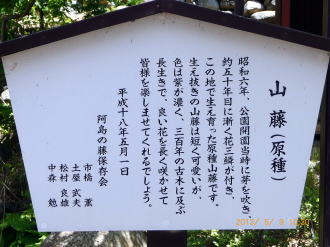 山藤(原種)
昭和六年、公園開園当時に芽を吹き
約五十年目に漸く花三瓣が付き、
この地で生え育った原種山藤です。
生え抜きの山藤は短く可愛いが、
色は紫が濃く、三百年の古木に及ぶ
長生きで、良い花を長く咲かせて
皆様を楽しませてくれるでしょう。
平成十八年五月一日
阿島の藤保存会
市橋 薫
土屋 武夫
松村 良雄
中森 勉